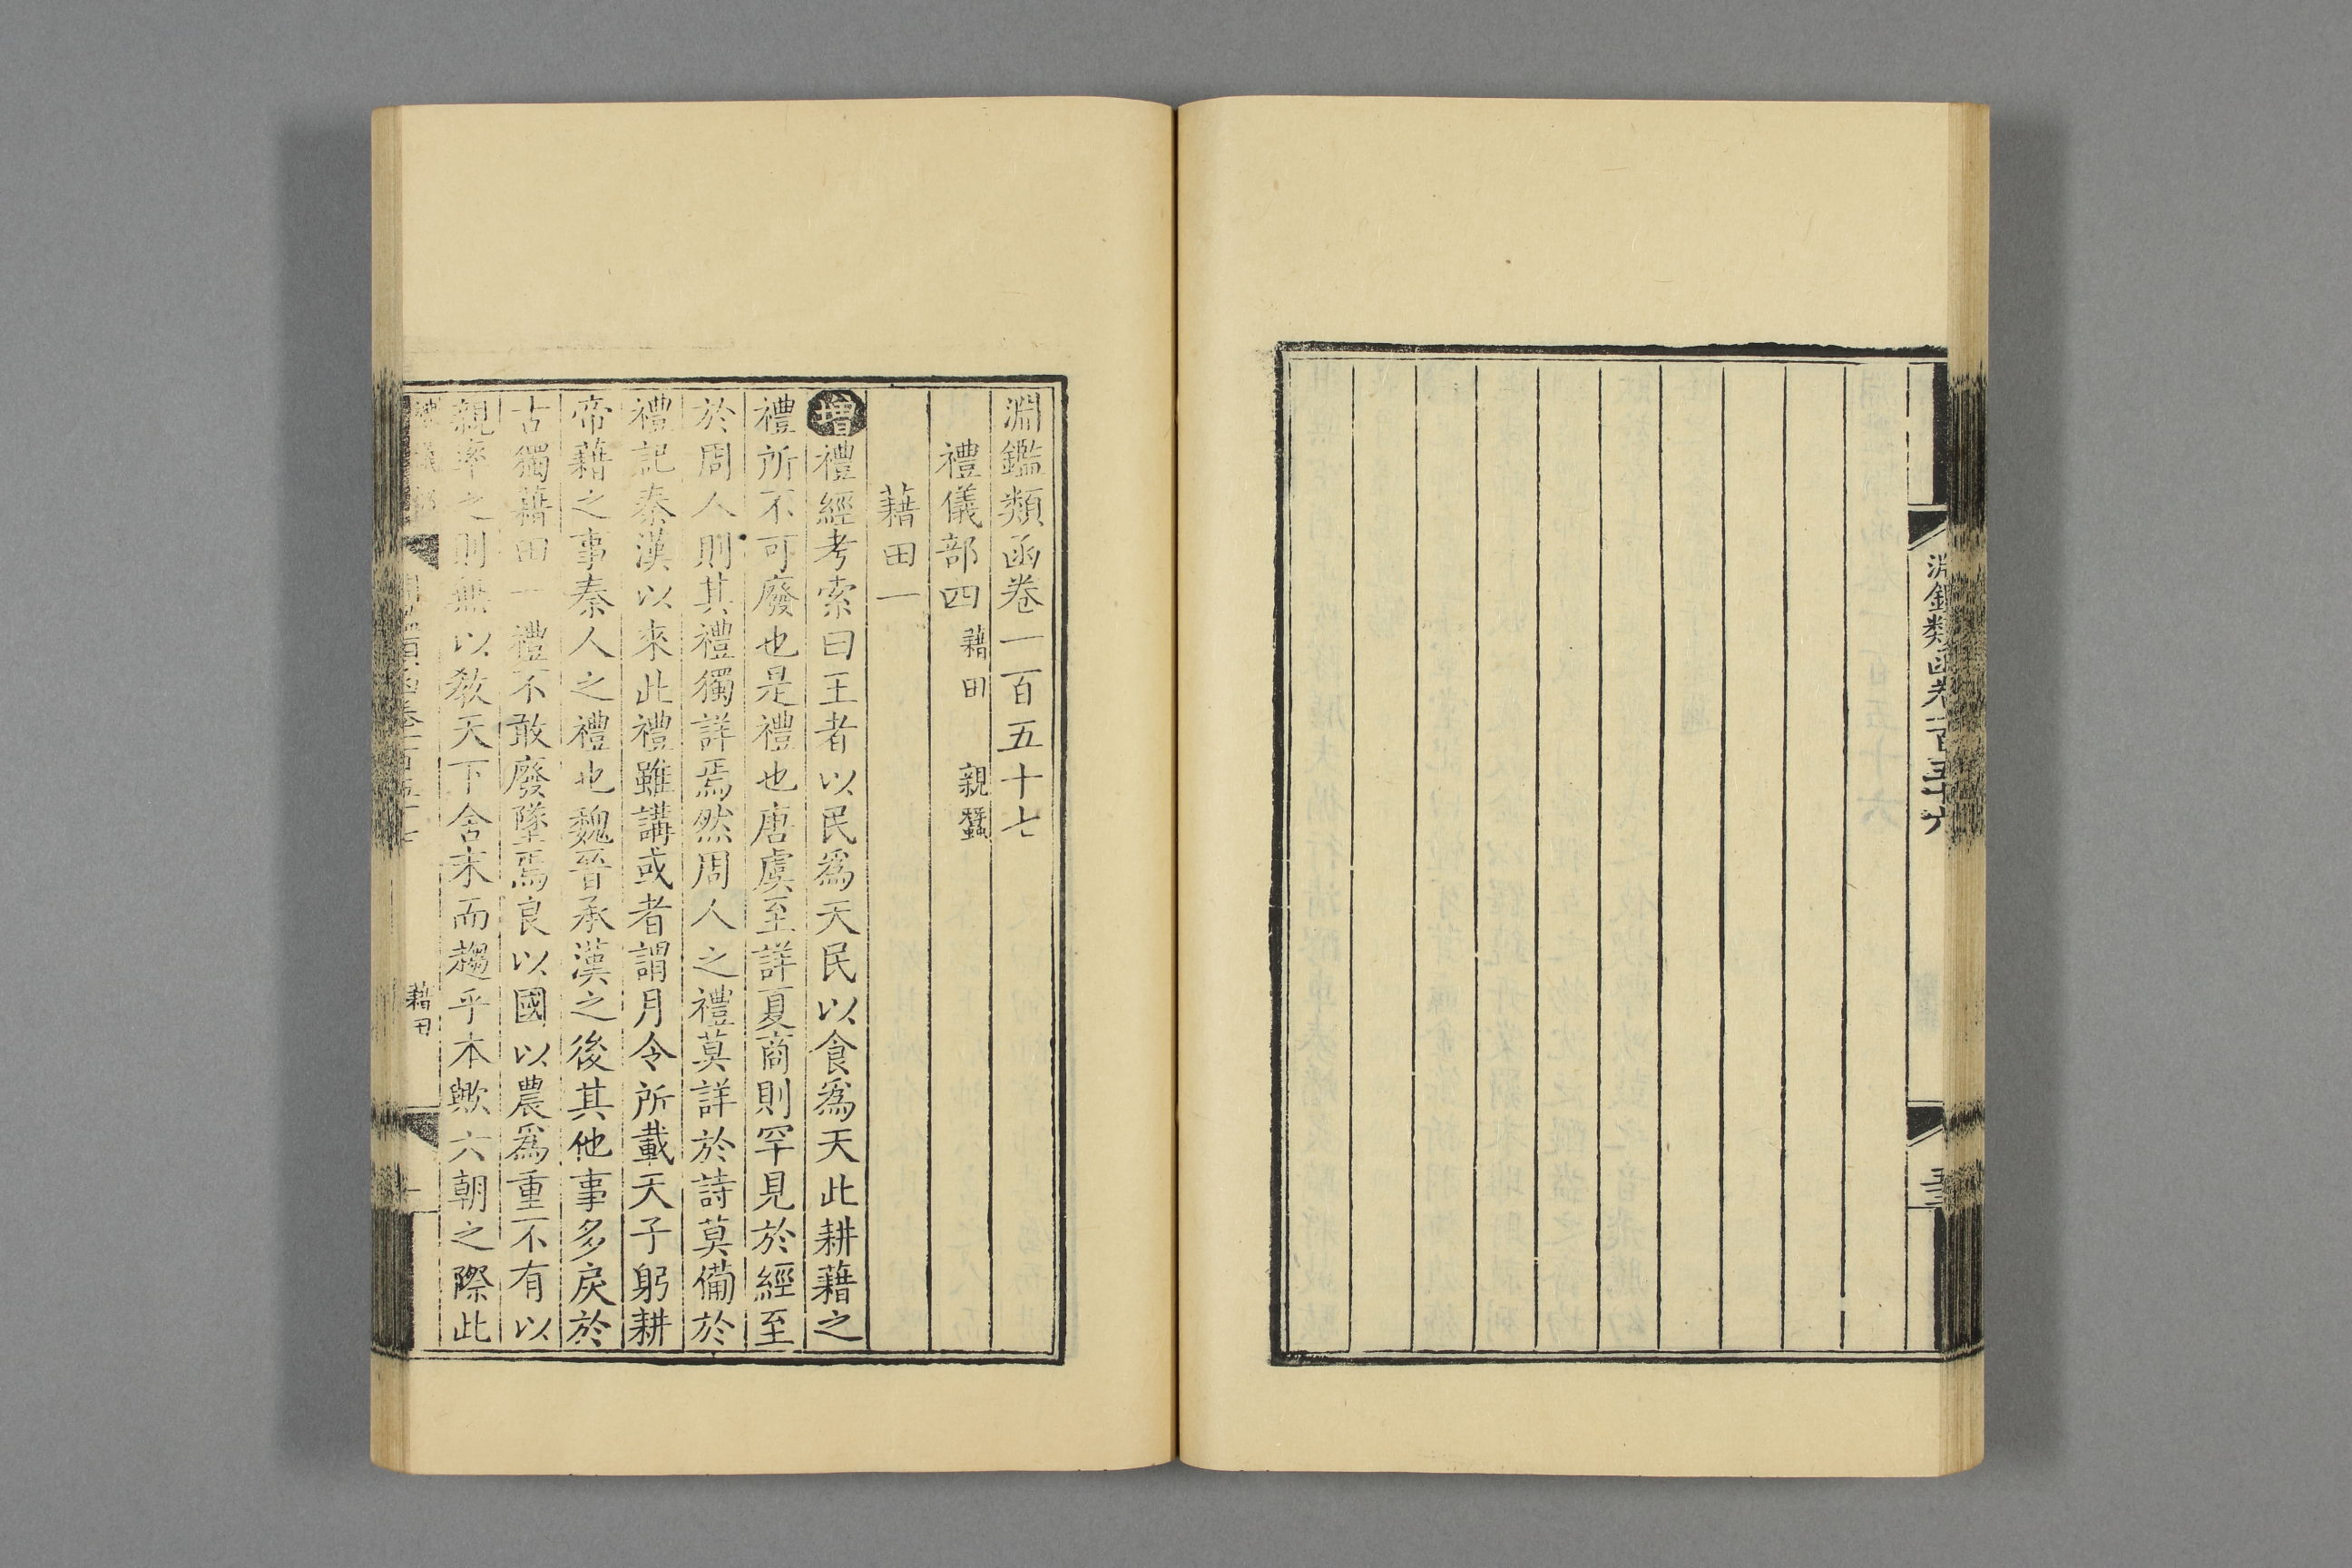 淵鑑類函卷一百五十六
淵鑑類函卷一百五十七
禮儀部四 藉田 親蠶
藉田一
增禮經考索曰王者以民爲天民以食爲天此耕藉之
禮所不可廢也是禮也唐虞至詳夏商則罕見於經至
於周人則其禮獨詳焉然周人之禮莫詳於詩莫備於
禮記秦漢以來此禮雖講或者謂月令所載天子躬耕
帝藉之事秦人之禮也魏晉承漢之後其他事多戾於
古獨藉田一禮不敢廢墜焉良以國以農爲重不有以
親率之則無以敎天下舍末而趨乎本歟六朝之際此
藉田